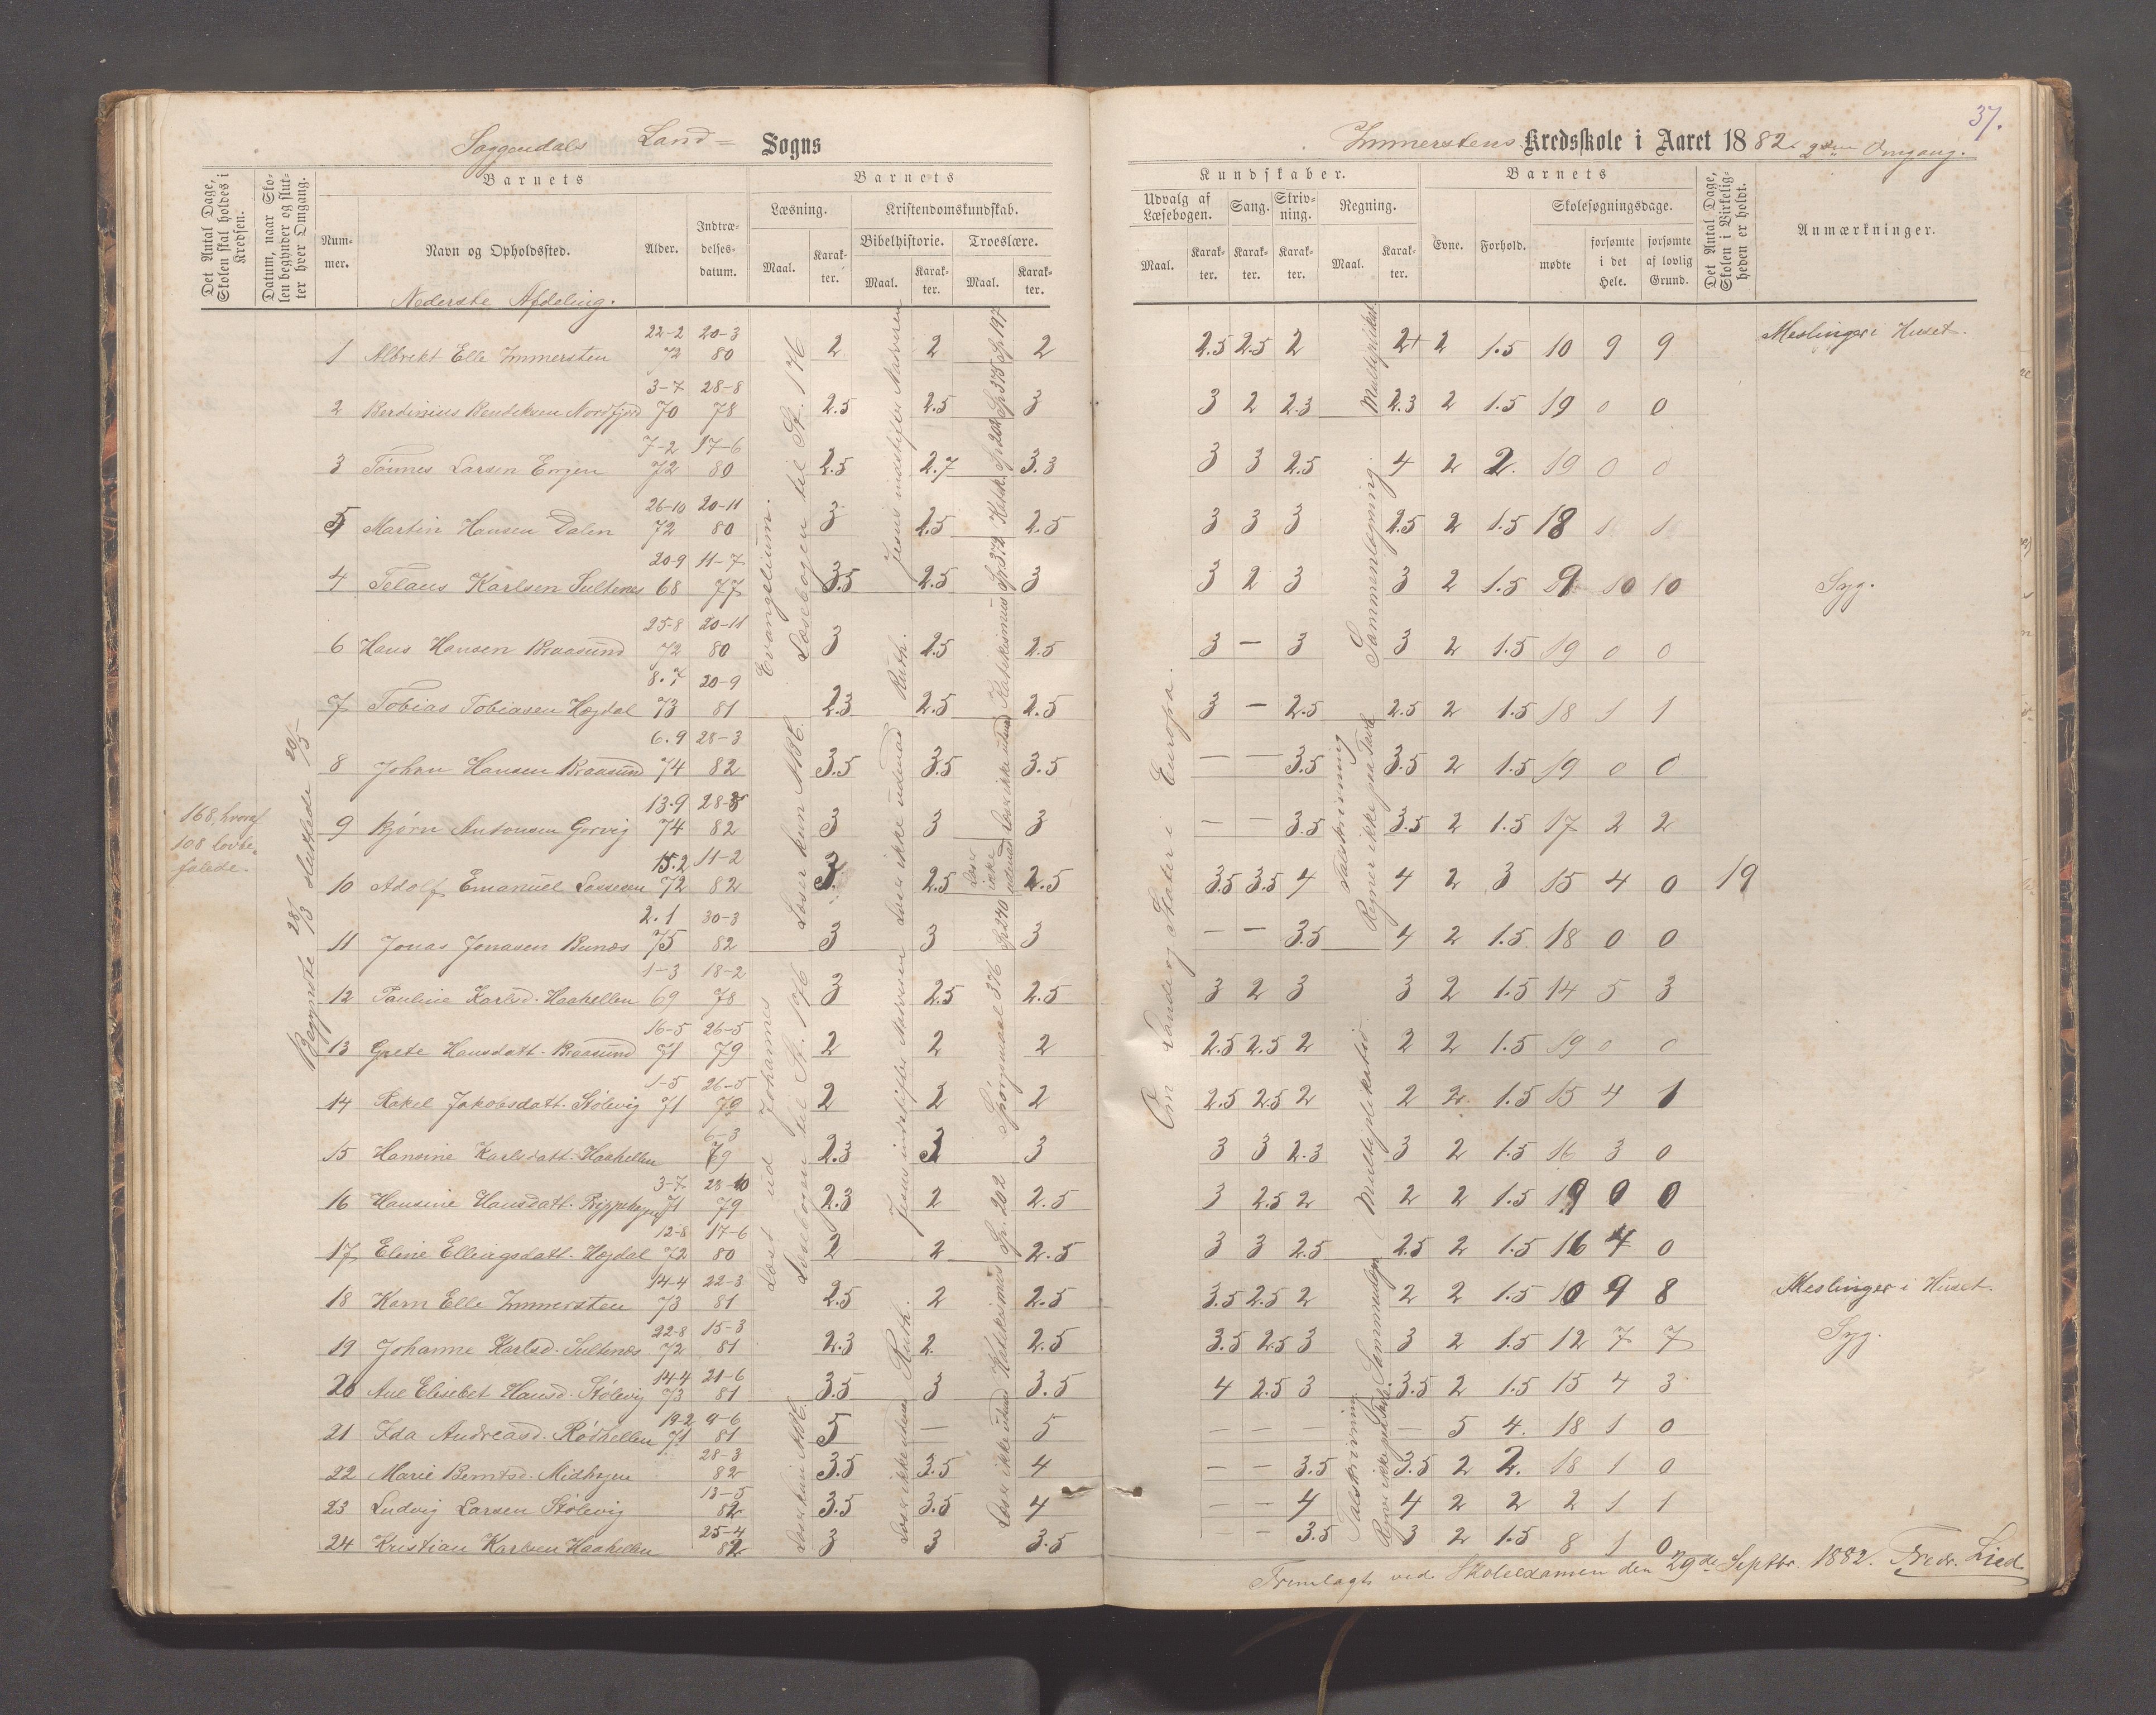 37.
Soggendals Land= Sogns
Immerstens Kredsskole i Aaret 1882. 2den Omgang.
Det Antal Dage, Skolen skal holdes i Kredsen.
Datum, naar Skolen begynder og slutter hver Omgang.
Barnets
Nummer.
Navn og Opholdssted.
Alder.
Indtrædelsesdatum.
Barnets
Læsning.
Maal.
Karakter.
Kristendomskundskab.
Bibelhistorie.
Maal.
Karakter.
Troeslære.
Maal.
Karakter.
Kundskaber.
Udvalg af Læsebogen.
Maal.
Karakter.
Sang.
Karakter.
Skrivning.
Karakter.
Regning.
Maal.
Karakter.
Barnets
Evne.
Forhold.
Skolesøgningsdage.
mødte
forsømte i det Hele.
forsømte af lovlig Grund.
Det Antal Dage, Skolen i Virkeligheden er holdt.
Anmærkninger.
Nederste Afdeling.
1 Albrekt Elle Immersten 22-2 72 20-3 80 2 2 2 2.5 2.5 2 2+ 2 1.5 10 9 9 Meslinger i Huset.
2 Berdinius Bendiksen Nordfjord 3-7 70 28-8 78 2.5 2.5 3 3 2 2.3 2.3 2 1.5 19 0 0
3 Tönnes Larsen Engen 7-2 72 17-6 80 2.5 2.7 3.3 3 3 2.5 4 2 2. 19 0 0
5 Martin Hansen Dalen 26-10 72 20-11 80 3 2.5 2.5 3 3 3 2.5 2 1.5 18 1 1
4 Telaus Karlsen Sultenes 20-9 68 11-7 77 3.5 2.5 3 3 2 3 3 2 1.5 9 10 10 Syg.
6 Hans Hansen Braasund 25-8 72 20-11 80 3 2.5 2.5 3 — 3 3 2 1.5 19 0 0
7 Tobias Tobiasen Hægdal 8.7 73 20-9 81 2.3 2.5 2.5 3 — 2.5 2.5 2 1.5 18 1 1
8 Johan Hansen Braasund 6.9 74 28-3 82 3.5 3.5 3.5 — — 3.5 3.5 2 1.5 19 0 0
9 Bjørn Antonsen Gorvig 13.9 74 28-3 82 3 3 3 — — 3.5 3.5 2 1.5 17 2 2
10 Adolf Emanuel 15.2 72 11-2 82 3. 2.5 2.5 3.5 3.5 4 4 2 3 15 4 0 19
11 Jonas Jonasen Bunæs 2.1 75 30-3 82 3 3 3 — — 3.5 4 2 1.5 18 0 0
12 Pauline Karlsd. Haahellen 1-3 69 18-2 78 3 2.5 2.5 3 2 3 3 2 1.5 14 5 3
13 Grete Hansdatt. Braasund 16-5 71 26-5 79 2 2 2 2.5 2.5 2 2 2 1.5 19 0 0
14 Rakel Jakobsdatt. Stölevig 1-5 71 26-5 79 2 2 2 2.5 2.5 2 2 2 1.5 15 4 1
15 Hansine Karlsdatt. Haahellen 6-3 79 2.3 3 3 3 3 2.3 3 2 1.5 16 3 0
16 Hansine Hansdatt. 3-7 71 28-10 79 2.3 2 2.5 3 2.5 2 2 2 1.5 19 0 0
17 Eline Ellingsdatt. Hægdal 12-8 72 17-6 80 2 2 2.5 3 3 2.5 2.5 2 1.5 16 4 0
18 Karn Elle Immersten 14-4 73 22-3 81 2.5 2 2.5 3.5 2.5 2 2 2 1.5 10 9 8 Meslinger i Huset.
19 Johanne Karlsd. Sultenæs 22-8 72 15-3 81 2.3 2. 2.5 3.5 2.5 3 3 2 1.5 12 7 7 Syg.
20 Ane Elisebet Hansd. Stölevig 14-4 73 21-6 81 3.5 3 3.5 4 2.5 3 3.5 2 1.5 15 4 3
21 Ida Andreasd. Rödhellen 19-2 71 9-6 81 5 — 5 — — — — 5 4. 18 1 0
22 Marie Berntsd. Midhægen 28-3 82 3.5 3.5 4 — — 3.5 3.5 2 2. 18 1 0
23 Ludvig Larsen Stölevig 13-5 82 3.5 3.5 4 — — 4 4 2 2 2 1 1
24 Kristian Karlsen Haahellen 25-4 82 3 3 3.5 — — 3.5 3 2 1.5 8 1 0
168, hvoraf
108 lovbe-
falede.
Begyndte 28/3 sluttede 20/5
Evangelium.
Læsebogen til St. 176
Læser kun ABC.
Læst ud Johannes
Læsebogen til St. 176
Læser kun ABC.
Jesus indstifter Nadveren
Ruth.
Læser ikke udenad
Jesus indstifter Nadveren
Ruth.
Læser ikke udenad
Sp. 197
Sp. 375
Sp. 202
Katekismus Sp. 372
Læser ikke udenad
Læser ikke udenad
Sp. 240
Spörgsmaal 376
Sp. 202
Katekismus
Læser ikke udenad
Om Lande og Stater i Europa.
Multiplikat.
Sammenlægning.
Talskrivning
Regner ikke paa Tavle
Multiplikation
Sammenlægn.
Talskrivning
Regner ikke paa Tavle.
Fremlagt ved Skoleexamen den 29de Septbr 1882. Fredr. Lied